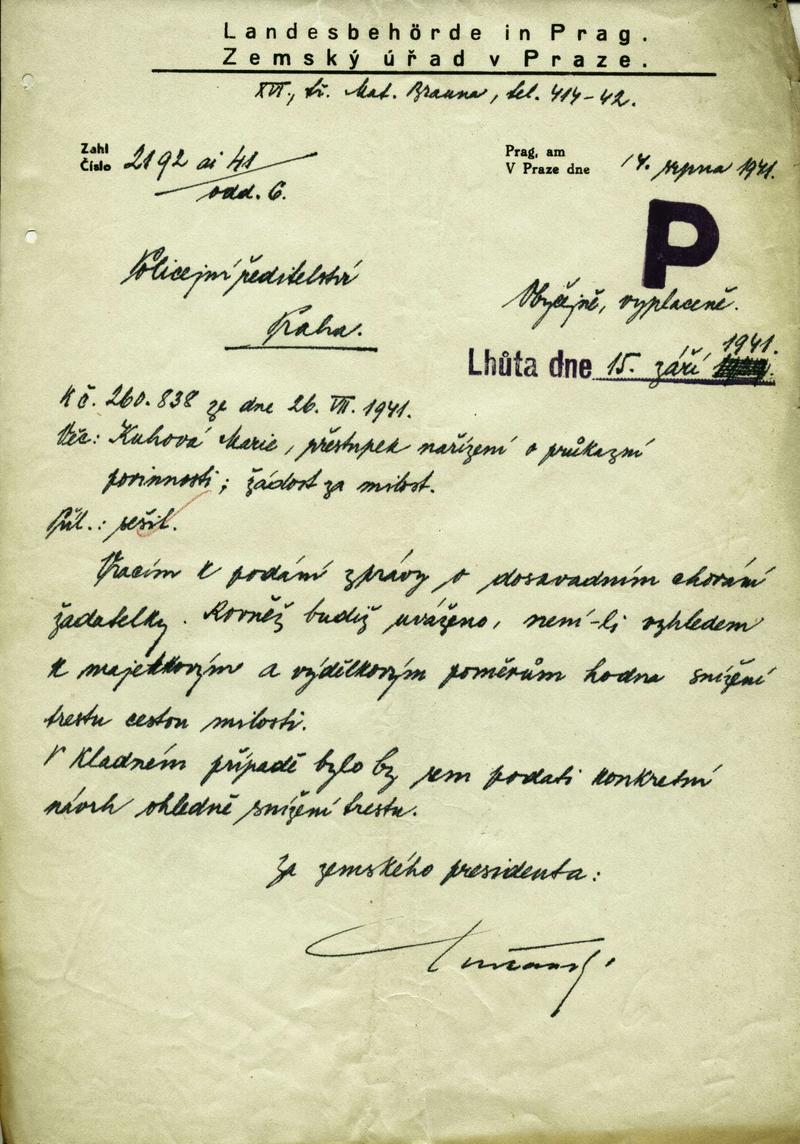 Landesbehörde in Prag.
Zemský úřad v Praze.
XVI., tř. Mat. Brauna, tel. 414-42.
Zahl
Číslo 2192 ai 41
odd. 6.
Prag, am
V Praze dne 14. srpna 1941.
P
Policejní ředitelství
Praha.
Obyčejně, vyplaceně.
1941.
Lhůta dne 15. září
K č. 260.838 ze dne 26. VII. 1941.
Věc: Kuhová Marie, přestupek nařízení o průkazní
povinnosti; žádost za milost.
Příl.: sešit.
Vracím k podání zprávy o dosavadním chování
žadatelky. Rovněž budiž uváženo, není-li vzhledem
k majetkovým a výdělkovým poměrům hodna snížení
trestu cestou milosti.
V kladném případě bylo by sem podati konkretní
návrh ohledně snížení trestu.
Za zemského presidenta: